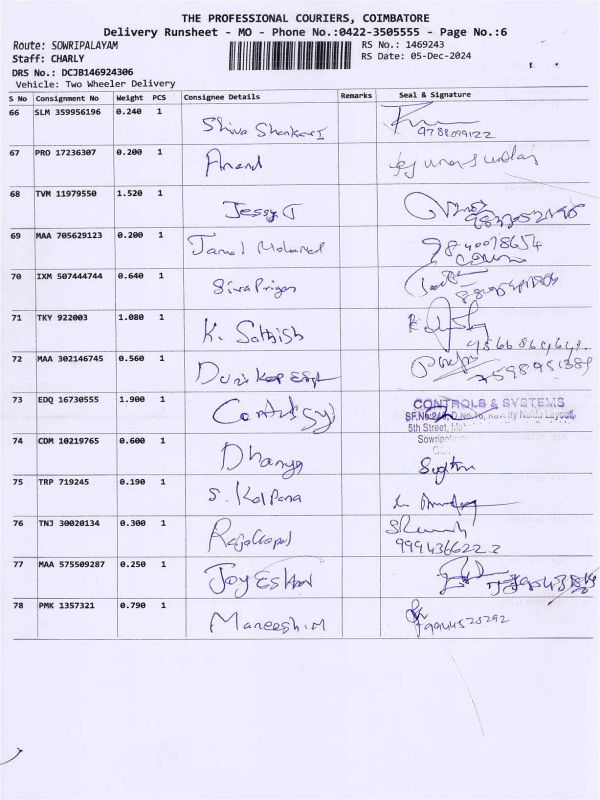 THE PROFESSIONAL COURIERS, COIMBATORE
Delivery Runsheet - MO - Phone No.:0422-3505555 - Page No.:6
Route: SOWRIPALAYAM RS No.: 1469243
Staff: CHARLY RS Date: 05-Dec-2024
DRS No.: DCJB146924306
Vehicle: Two Wheeler Delivery
S No Consignment No Weight PCS Consignee Details Remarks Seal & Signature
66 SLM 359956196 0.240 1 Shiva Shankari
9788099122
67 PRO 17236307 0.200 1 Anand
68 TVM 11979550 1.520 1 Jessy J
69 MAA 705629123 0.200 1 Jamal Mohamed 9840078654
70 IXM 507444744 0.640 1 SivaPriya
71 TKY 922003 1.080 1 K. Sathish
72 MAA 302146745 0.560 1
7598951389
73 EDQ 16730555 1.900 1 CONTROLS & SYSTEMS
5th Street,
74 CDM 10219765 0.600 1 Dhanya
75 TRP 719245 0.190 1 S. Kalpana
76 TNJ 30020134 0.300 1 RajaGopal
9994366222
77 MAA 575509287 0.250 1
78 PMK 1357321 0.790 1 Maneesh.M
9944523292